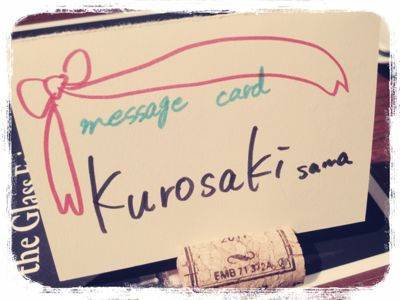 message card
Kurosaki sama
the Glass
2011
EMB 71 372A